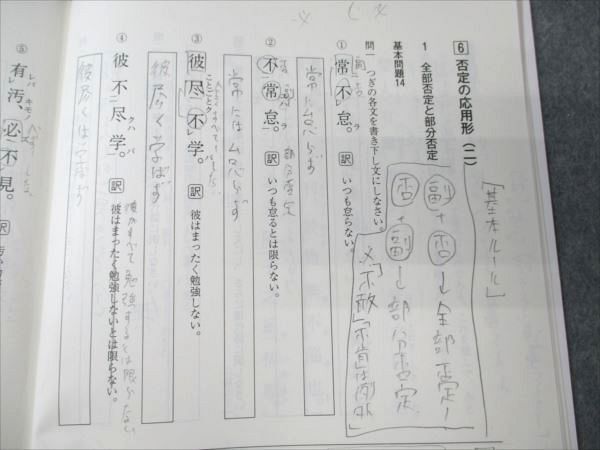 6 否定の応用形(二)
「基本ルール」
1 全部否定と部分否定
副+否→全部否定
否+副→部分否定
基本問題14
問 つぎの各文を書き下し文にしなさい。
① 常不怠。 訳 いつも怠らない。
常に怠らず
② 不常怠。 訳 いつも怠るとは限らない。
部分否定
常には怠らず
③ 彼尽不学。 訳 彼はまったく勉強しない。
彼尽く学ばず
④ 彼不尽学。 訳 彼はまったく勉強しないとは限らない。
彼がすべて勉強するとは限らない
彼尽くは学ばず
⑤ 有汚、必不見。 訳